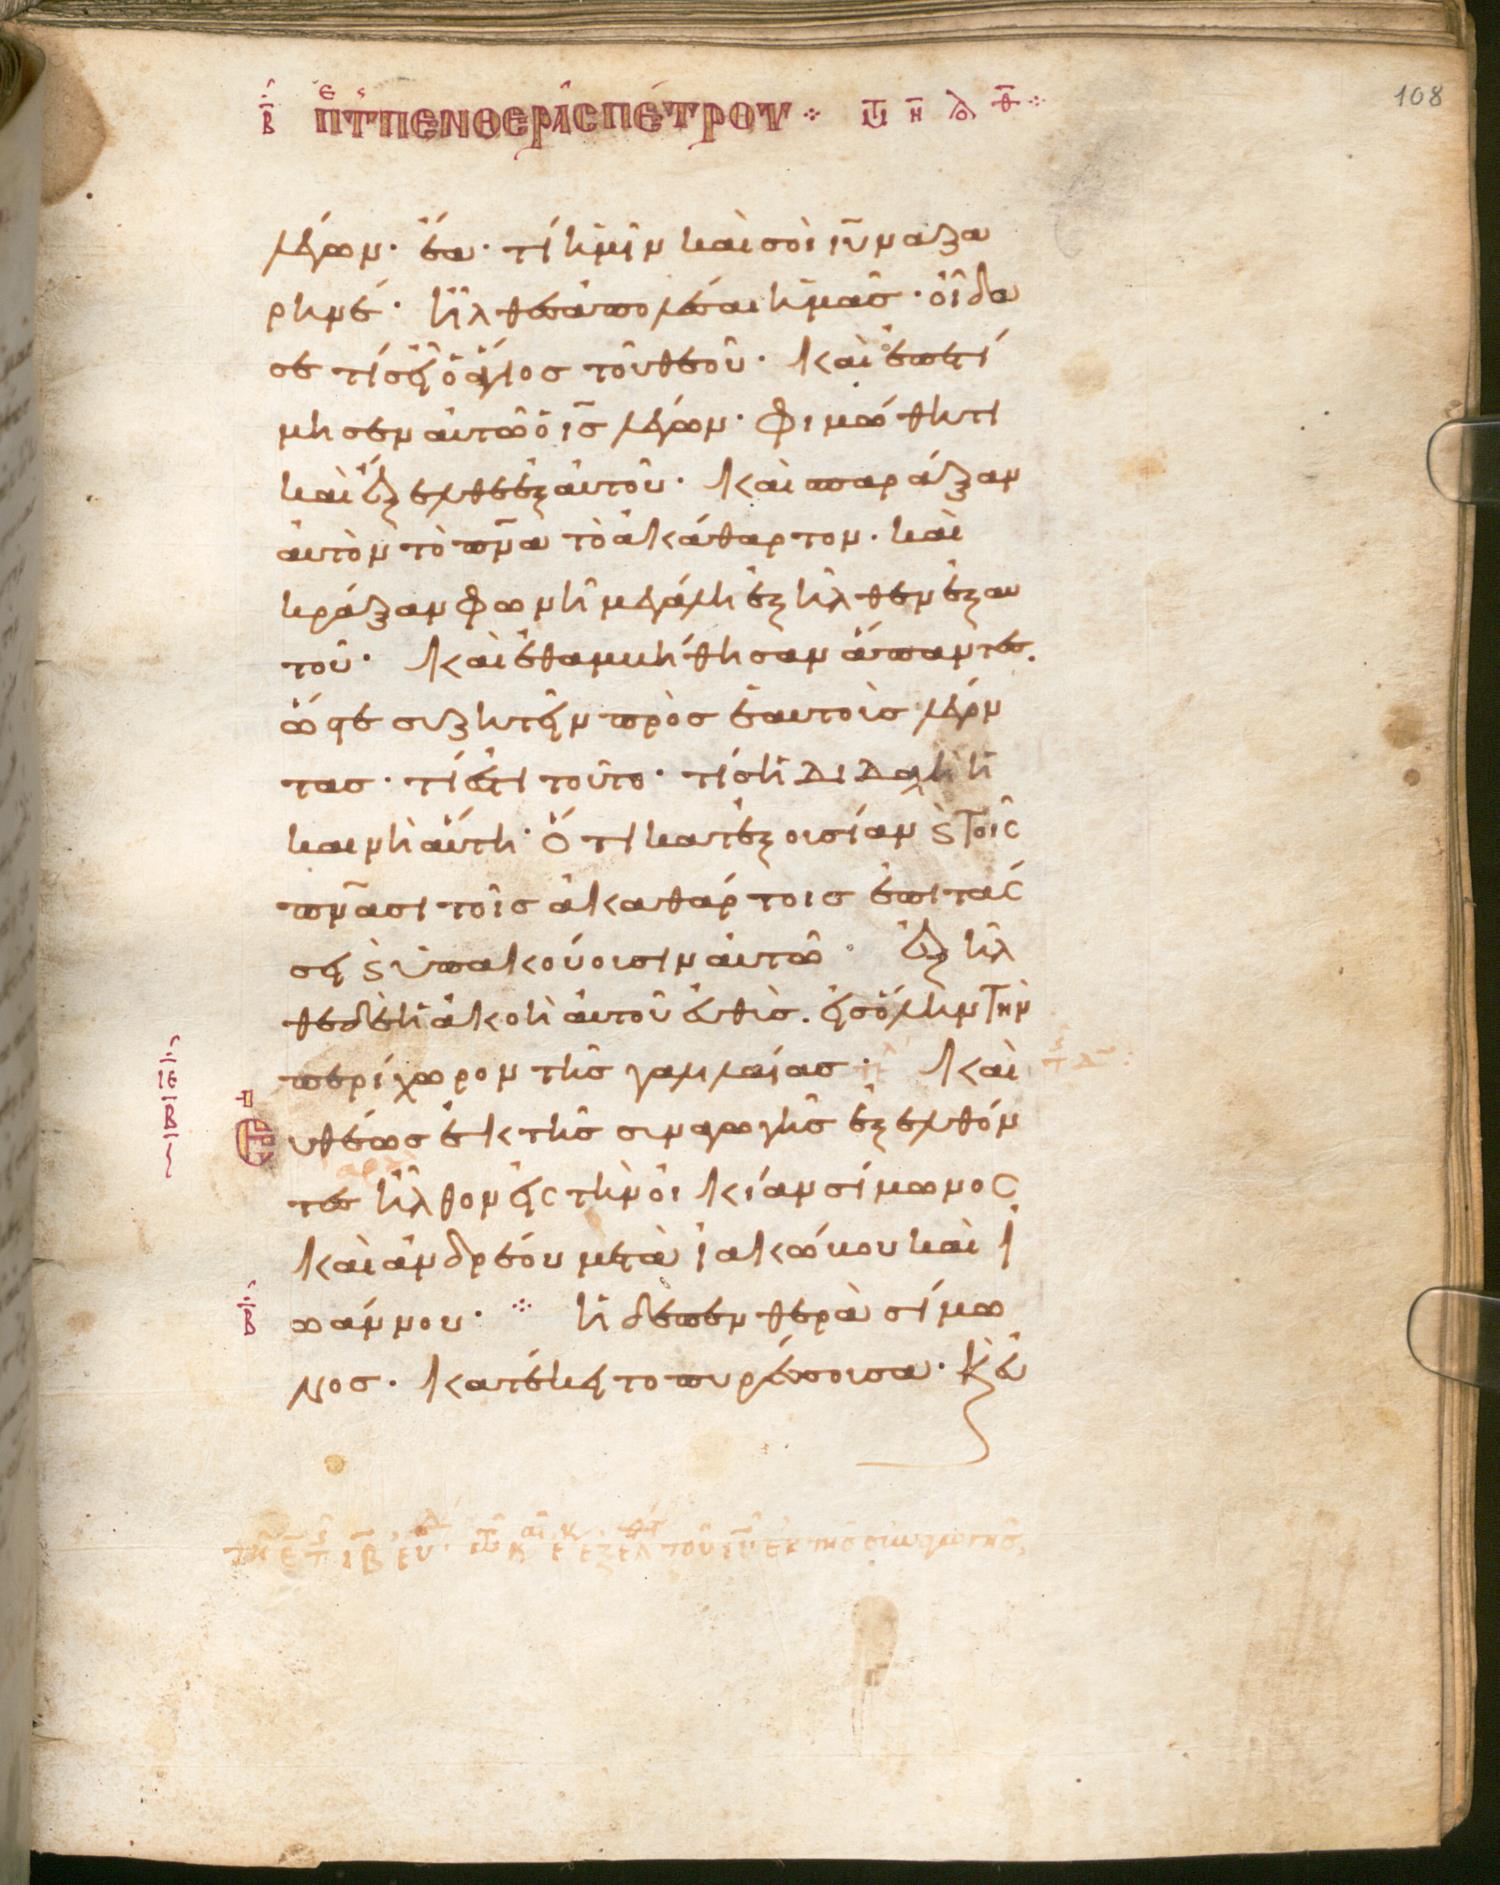 β πε τς πενθερας πετρου ⁘ 
108
λέγων· ἔα· τί ἡμῖν καὶ σοὶ ιῡ ναζα
ρηνέ· ἦλθες ἀπολέσαι ἡμᾶς· οἶδα
σε τίς εἶ ὁ ἅγιος τοῦ θεοῦ· καὶ ἐπετί
μησεν αὐτῶ ὁ ις̄ λέγων· φιμώθητι
καὶ ἔξελθε ἐξ αὐτοῦ· καὶ σπαράξαν
ἀυτὸν τὸ πνᾱ τὸ ἀκάθαρτον· καὶ
κράξαν φωνῆ μεγάλη ἐξῆλθεν ἐξ αυ
τοῦ· καὶ ἐθαμβήθησαν ἅπαντες.
ὥστε συζητεῖν πρὸς ἑαυτοὶς λέγον
τας· τί ἐστι τοῦτο· τίς ἡ διδαχὴ ἡ
καινὴ αὕτη· ὅτι κατ ἐξουσίαν ϛ τοῖς
πνᾱσι τοῖς ἀκαθάρτοις ἐπιτάς
σει ϛ ὑπακούουσιν αὐτῶ· ἐξῆλ
θε δὲ ἡ ἀκοὴ αὐτοῦ ἐυθὺς. εἰς ὅλην τὴν
περίχωρον τῆς γαλιλαίας· καὶ
ιε
β
ευθέως ἐκ τῆς συναγωγῆς ἐξελθόν
τες ἦλθον εἰς τὴν οἰκίαν σίμωνος
καὶ ἀνδρέου μετὰ ἰακώβου καὶ ἰ
β ωάννου· ⁘ ἡ δὲ πενθερὰ σίμω
νος· κατέκειτο πυρέσσουσα· κ ἐυ
ἐξελθ τοῦ ιῡ ἐκ τῆς συναγωγῆς